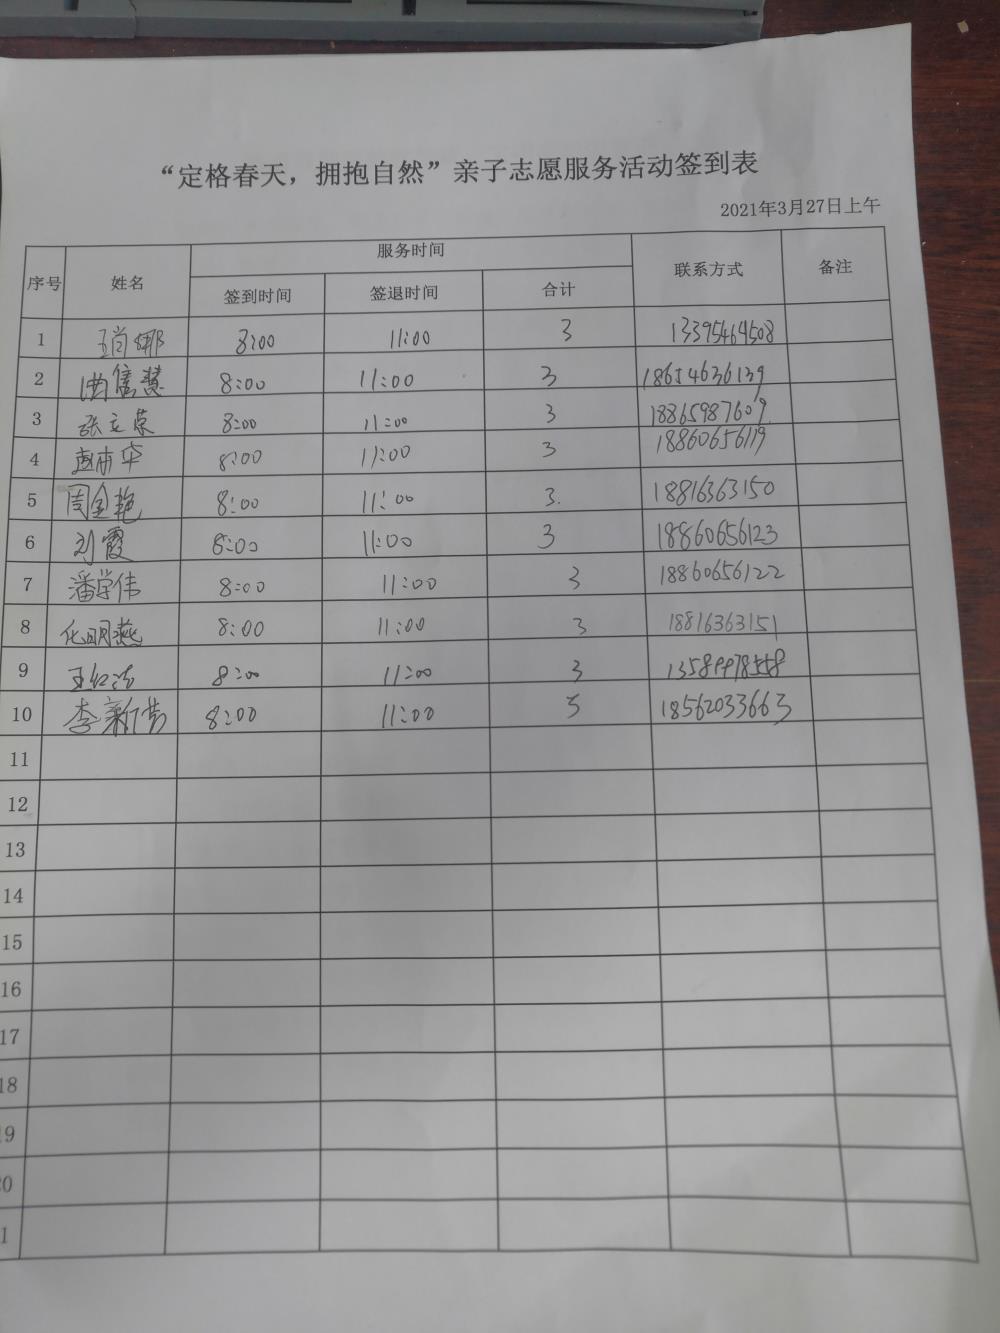 “定格春天，拥抱自然”亲子志愿服务活动签到表
2021年3月27日上午
序号 姓名 服务时间 联系方式 备注
签到时间 签退时间 合计
1 8:00 11:00 3 13395464508
2 曲信慧 8:00 11:00 3 18654636139
3 张立荣 8:00 11:00 3 18865987609
4 赵南华 8:00 11:00 3 18860656119
5 周金艳 8:00 11:00 3. 18816363150
6 刘霞 8:00 11:00 3 18860656123
7 潘学伟 8:00 11:00 3 18860656122
8 化明燕 8:00 11:00 3 18816363151
9 王红 8:00 11:00 3 13589978558
10 李新 8:00 11:00 3 18562033663
11
12
13
14
15
16
17
18
19
20
1